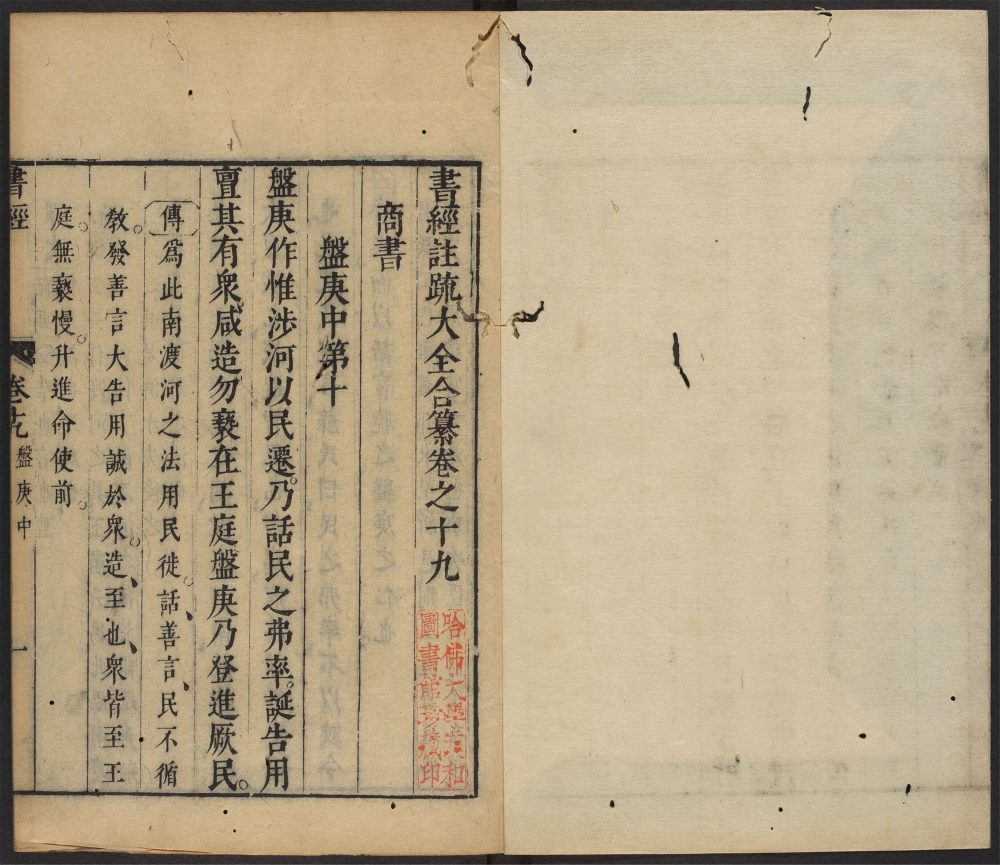 書經註疏大全合纂卷之十九
哈佛大學漢和
圖書館珍藏印
商書
盤庚中第十
盤庚作惟涉河以民遷。乃話民之弗率。誕告用
亶其有衆。咸造勿褻在王庭盤庚乃登進厥民。
傳爲此南渡河之法用民徙。話、善言、民不循
教。發善言大告用誠於衆。造、至也、衆皆至王
庭。無褻慢。升進命使前。
書經 卷十九 盤庚中 一